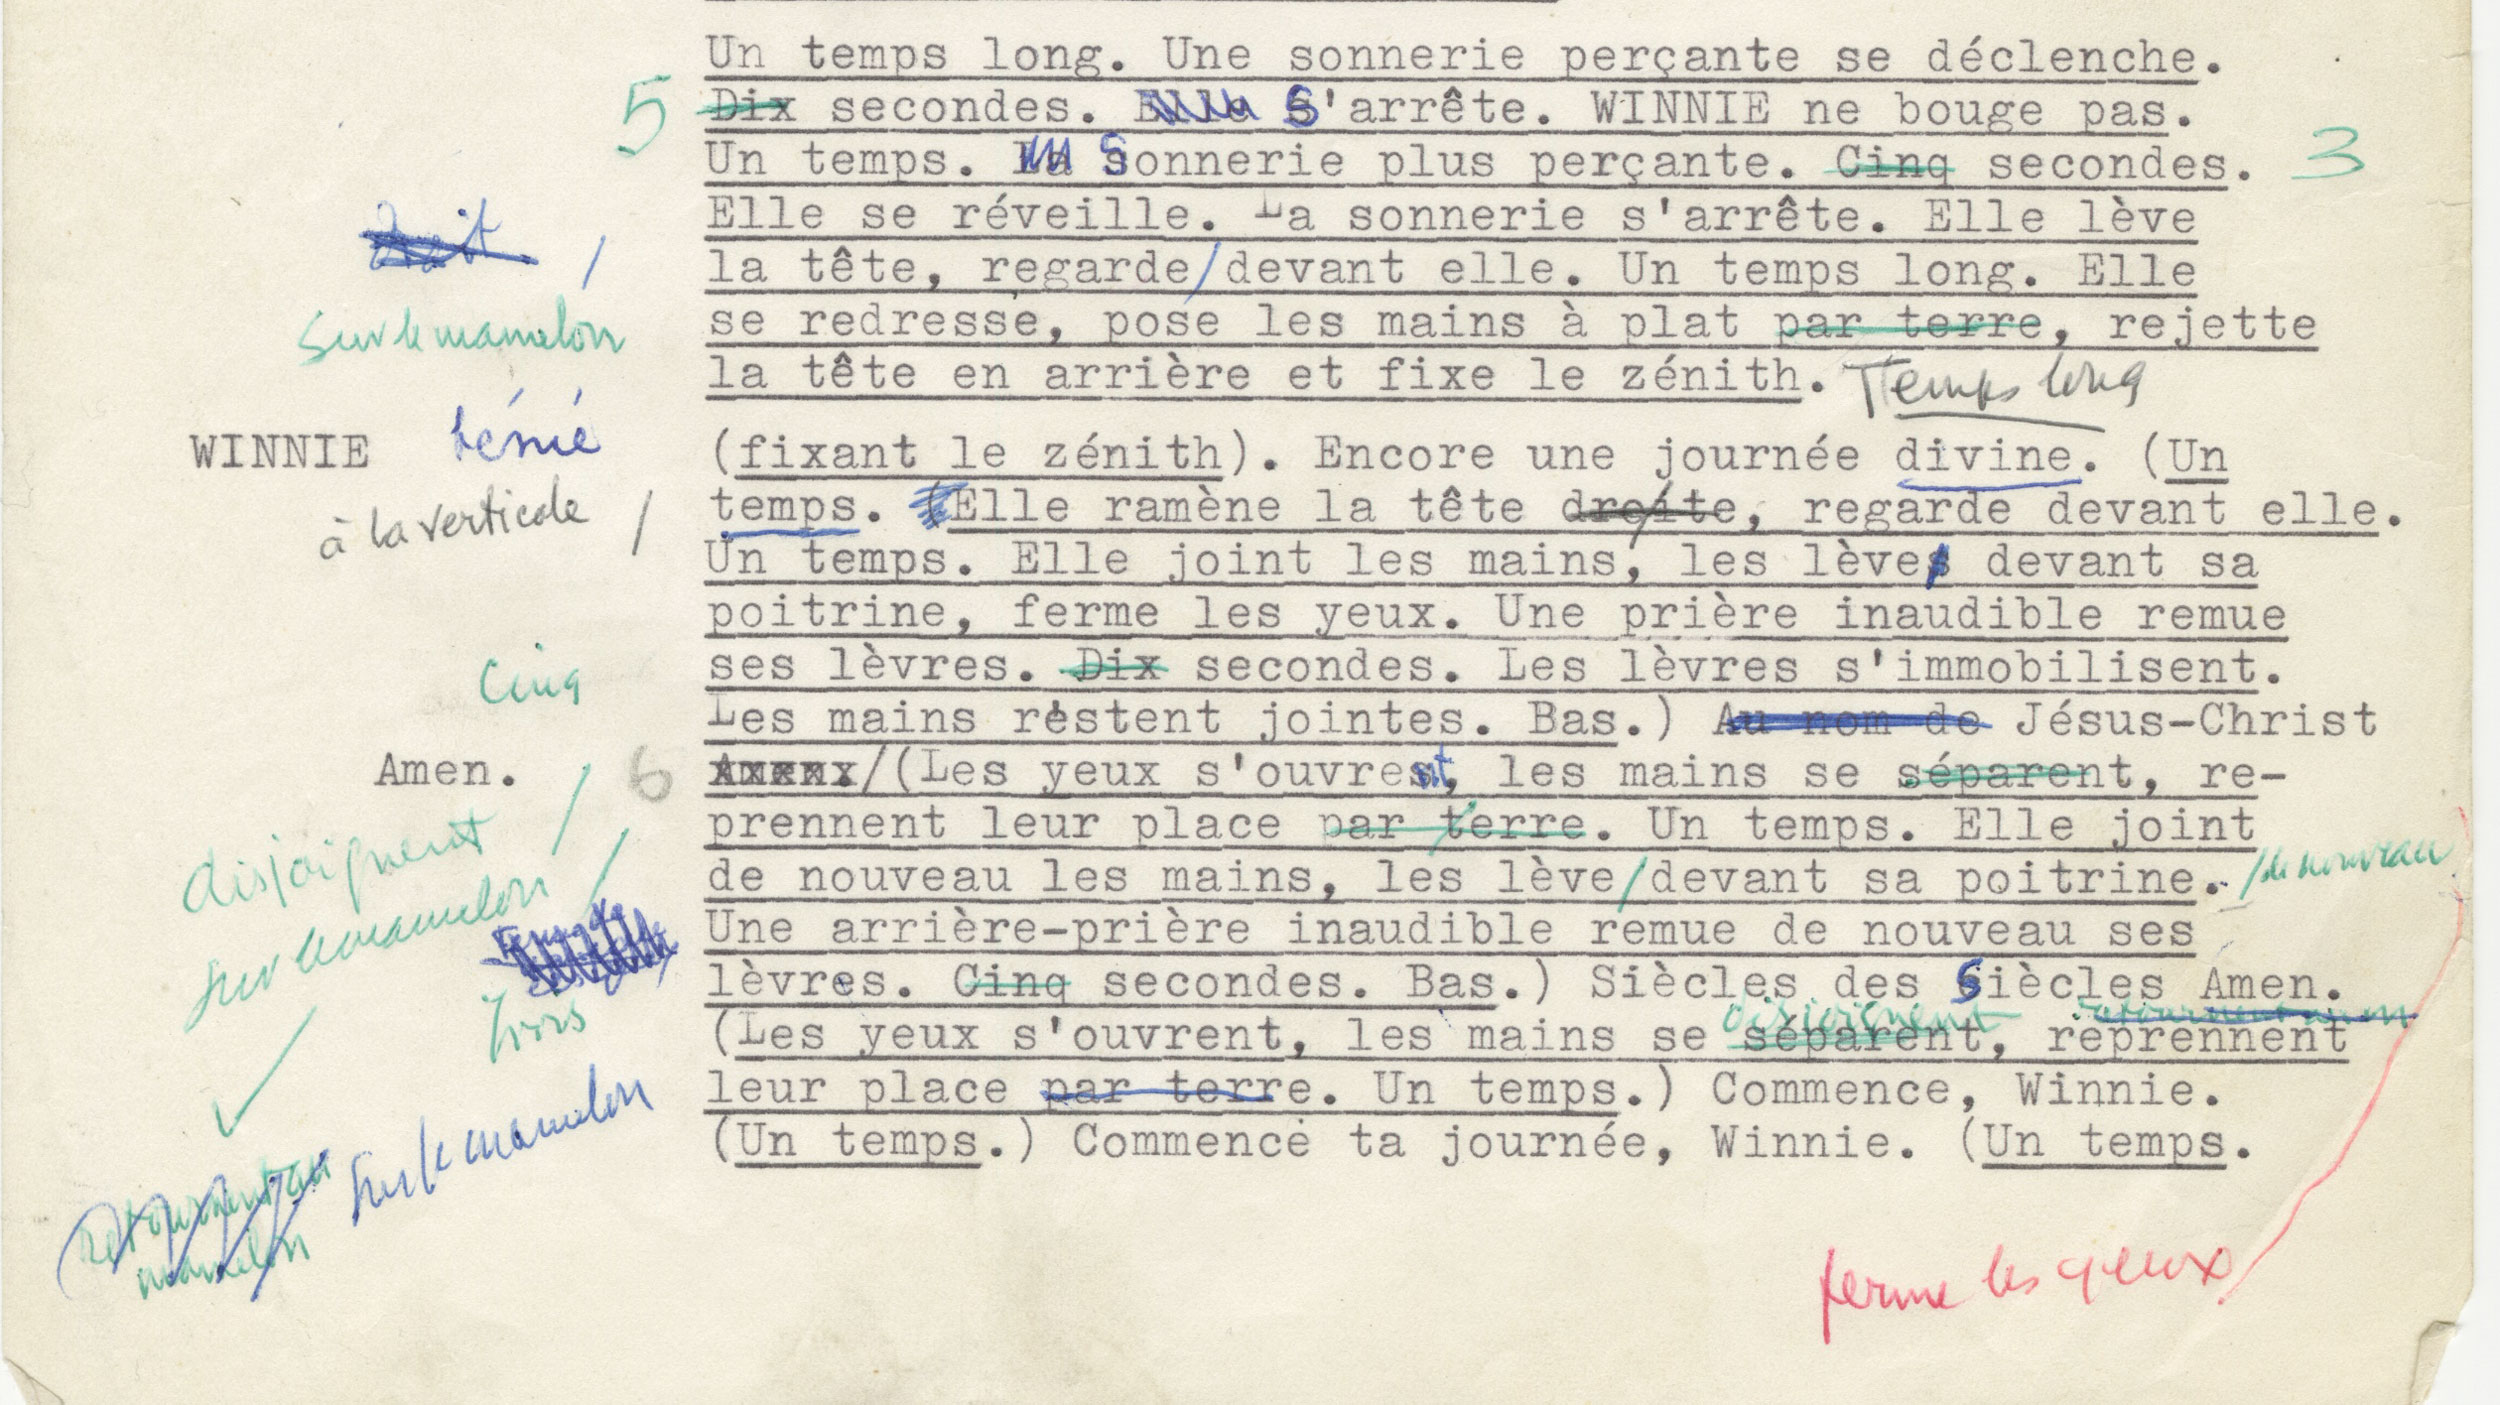 Un temps long. Une sonnerie perçante se déclenche.
5 Dix secondes. Elle S'arrête. WINNIE ne bouge pas.
Un temps. La Sonnerie plus perçante. Cinq secondes. 3
Elle se réveille. La sonnerie s'arrête. Elle lève
droit /
la tête, regarde/devant elle. Un temps long. Elle
sur le mamelon
se redresse, pose les mains à plat par terre, rejette
la tête en arrière et fixe le zénith. Temps long
WINNIE
(fixant le zénith). Encore une journée divine. (Un
à la verticale /
temps. (Elle ramène la tête droite, regarde devant elle.
Un temps. Elle joint les mains, les lèves devant sa
poitrine, ferme les yeux. Une prière inaudible remue
Cinq
ses lèvres. Dix secondes. Les lèvres s'immobilisent.
Les mains restent jointes. Bas.) Au nom de Jésus-Christ
Amen. 6
Amen./(Les yeux s'ouvrent, les mains se séparent, re-
disjoignent /
prennent leur place par terre. Un temps. Elle joint
sur le mamelon /
de nouveau les mains, les lève/devant sa poitrine. /de nouveau
Une arrière-prière inaudible remue de nouveau ses
Trois
lèvres. Cinq secondes. Bas.) Siècles des Siècles Amen.
disjoignent
(Les yeux s'ouvrent, les mains se séparent, reprennent
sur le mamelon
leur place par terre. Un temps.) Commence, Winnie.
(Un temps.) Commence ta journée, Winnie. (Un temps.
retournent au
mamelon
ferme les yeux